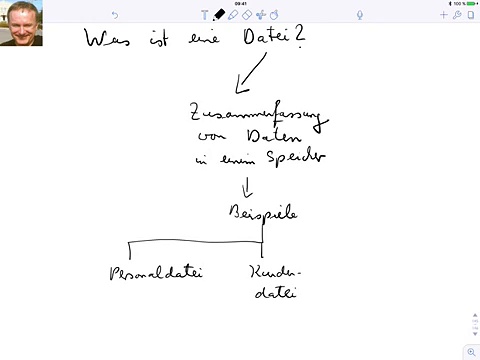 09:41
100 %
Was ist eine Datei?
Zusammenfassung
von Daten
in einem Speicher
Beispiele
Personaldatei
Kunden-
datei